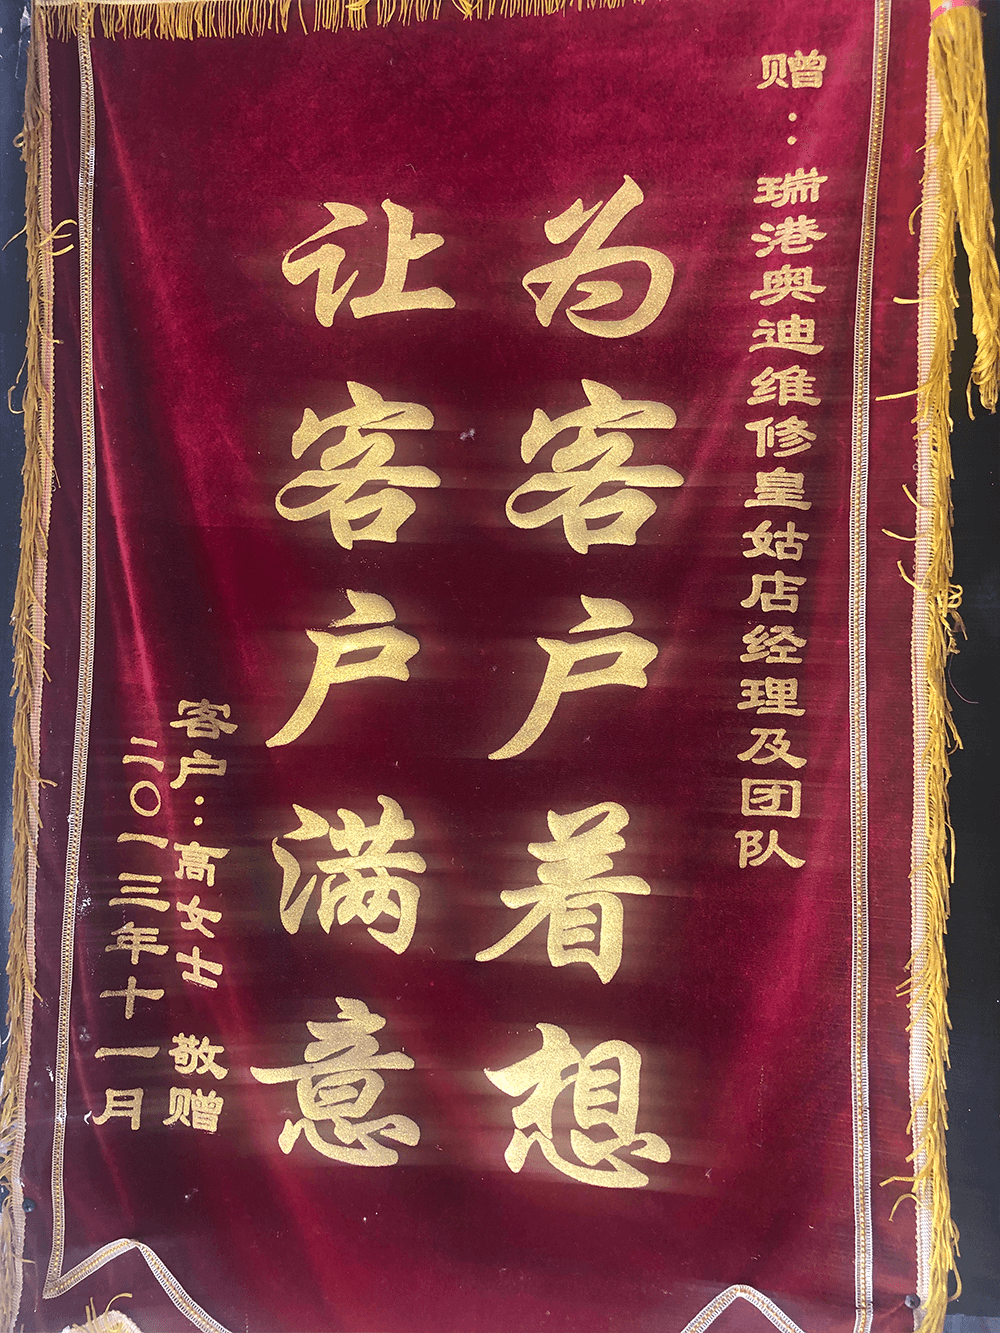 赠：瑞港奥迪维修皇姑店经理及团队
为客户着想
让客户满意
客户：高女士 敬赠
二〇一三年十一月